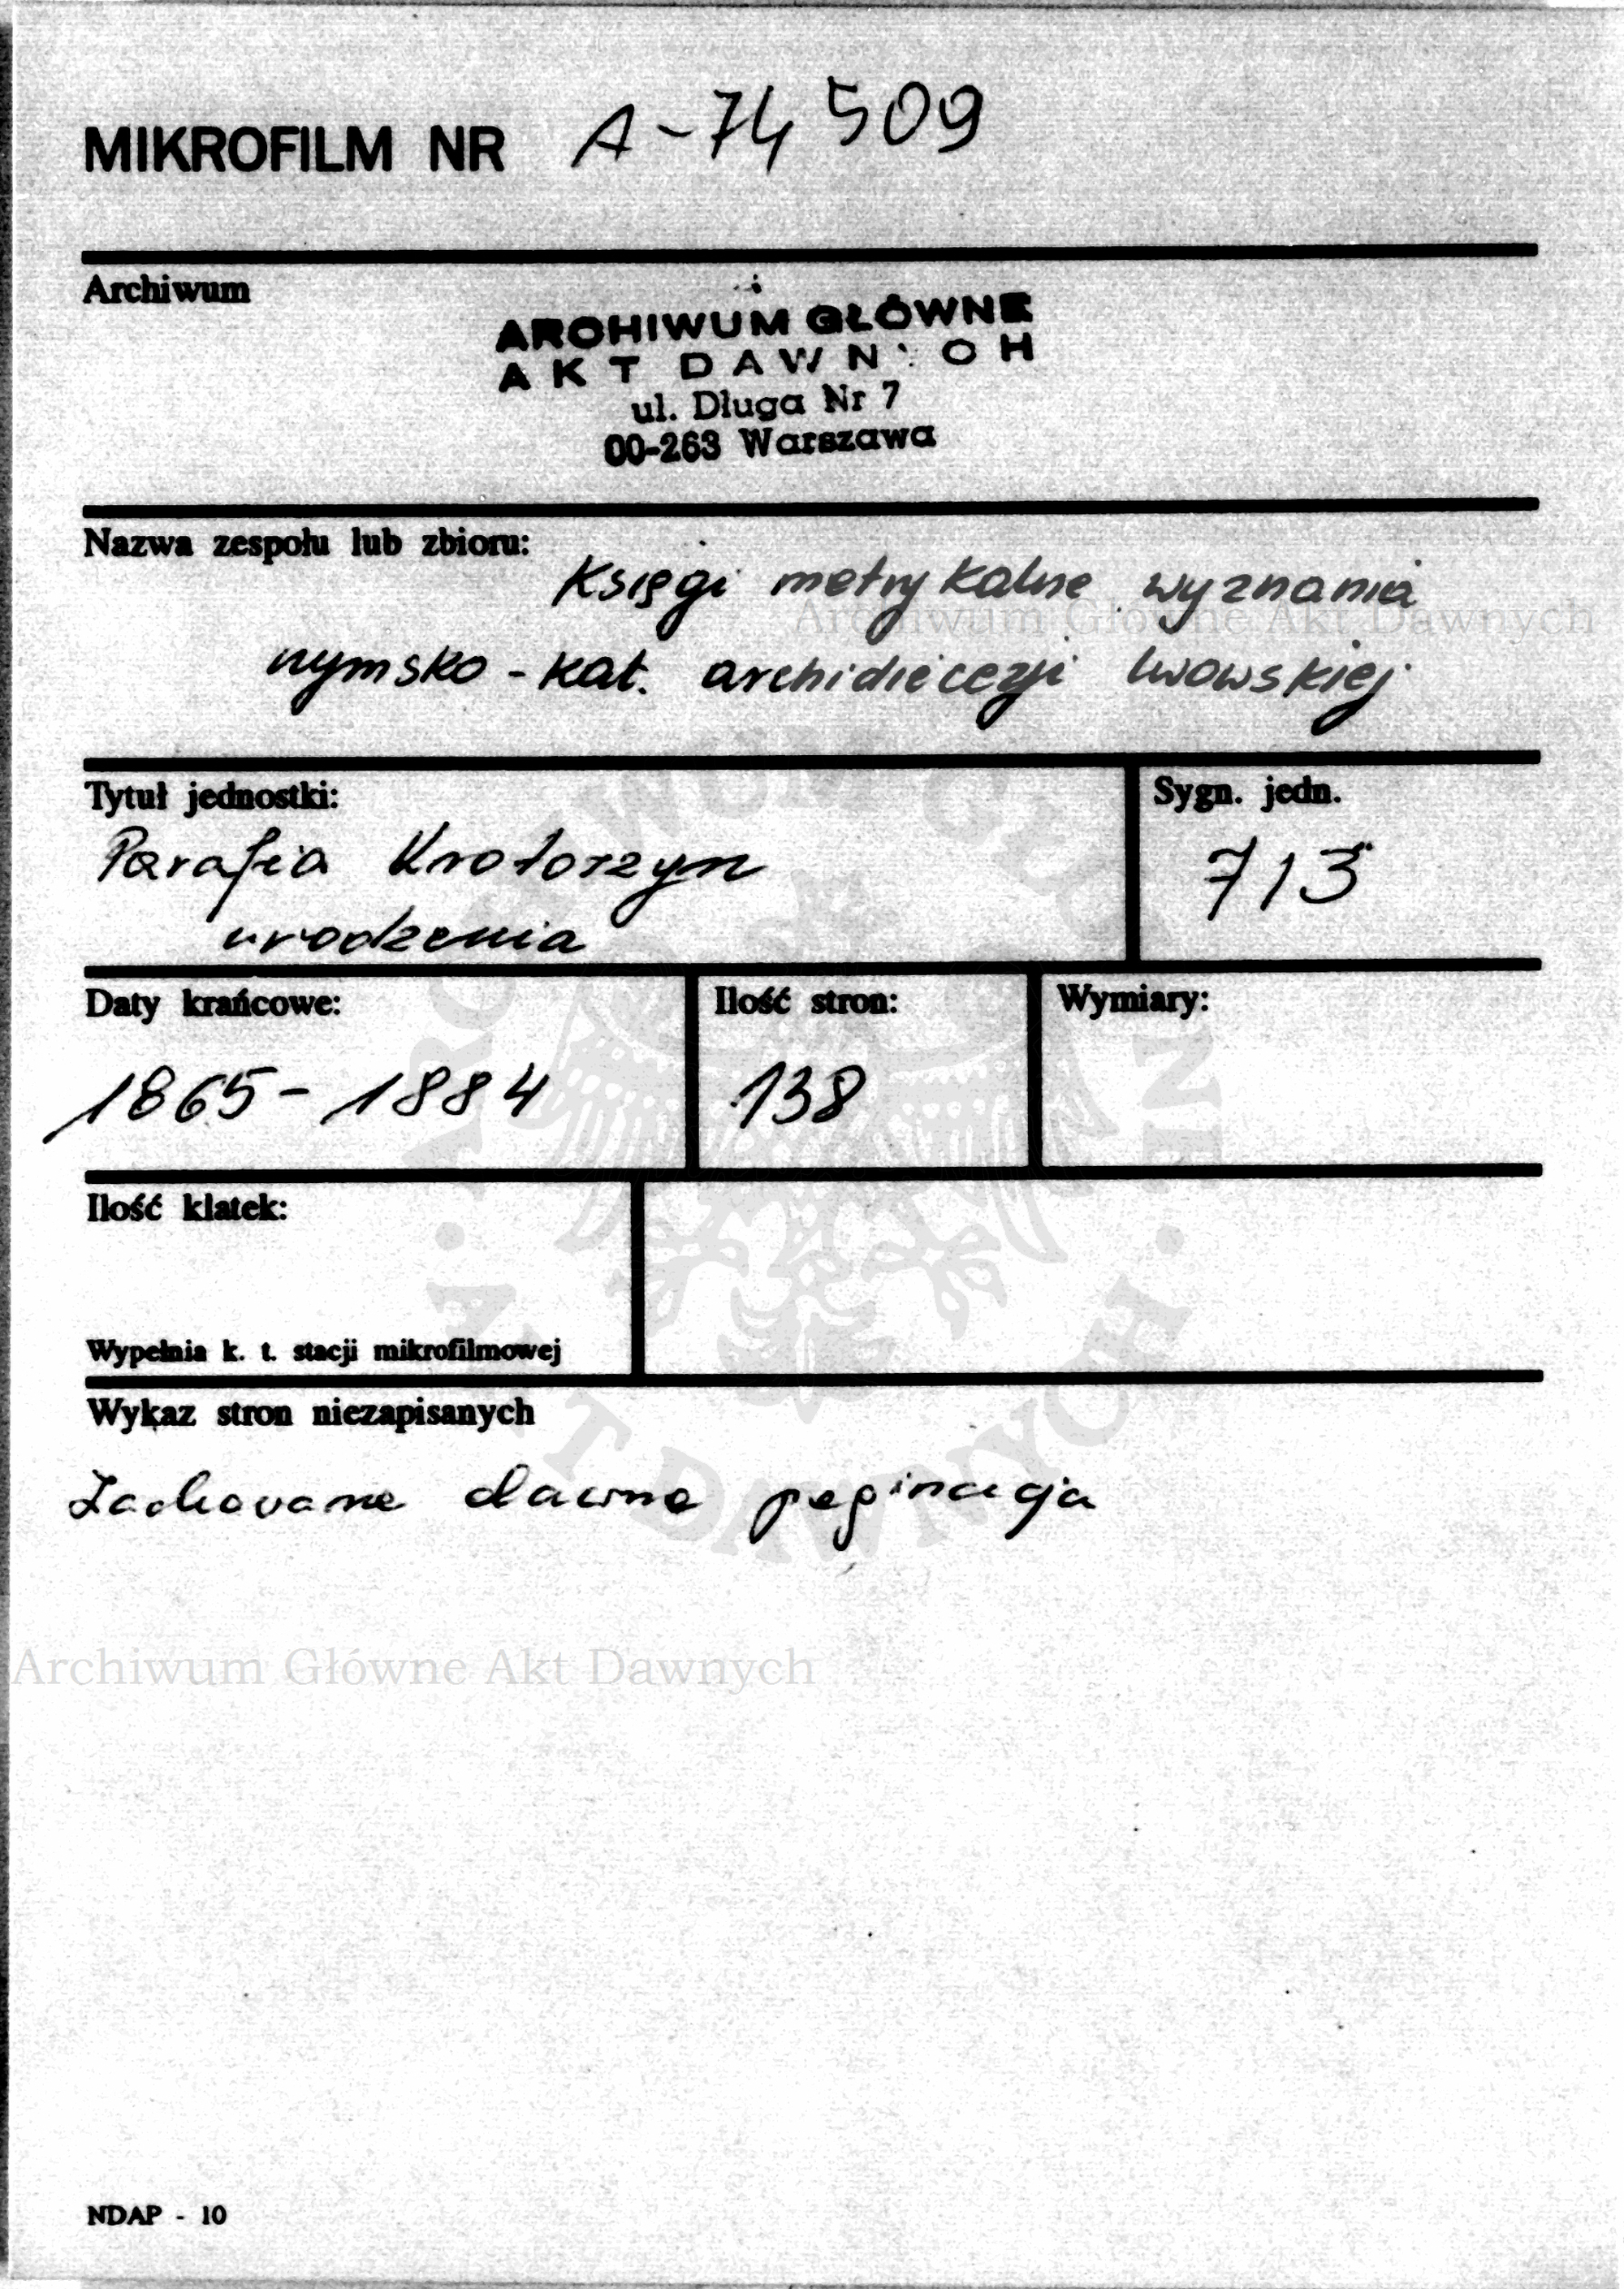 MIKROFILM NR A-74 509
Archiwum
ARCHIWUM GŁÓWNE
AKT DAWNYCH
ul. Długa Nr 7
00-263 Warszawa
Nazwa zespołu lub zbioru:
Księgi metrykalne wyznania
rzymsko-kat. archidiecezji lwowskiej
Archiwum Główne Akt Dawnych
Tytuł jednostki:
Parafia Krotoszyn
urodzenia
Sygn. jedn.
713
Daty krańcowe:
1865-1884
Ilość stron:
138
Wymiary:
Ilość klatek:
Wypełnia k. t. stacji mikrofilmowej
Wykaz stron niezapisanych
Zachowane dawne paginacja
Archiwum Główne Akt Dawnych
ARCHIWUM GŁÓWNE · AKT DAWNYCH ·
NDAP - 10